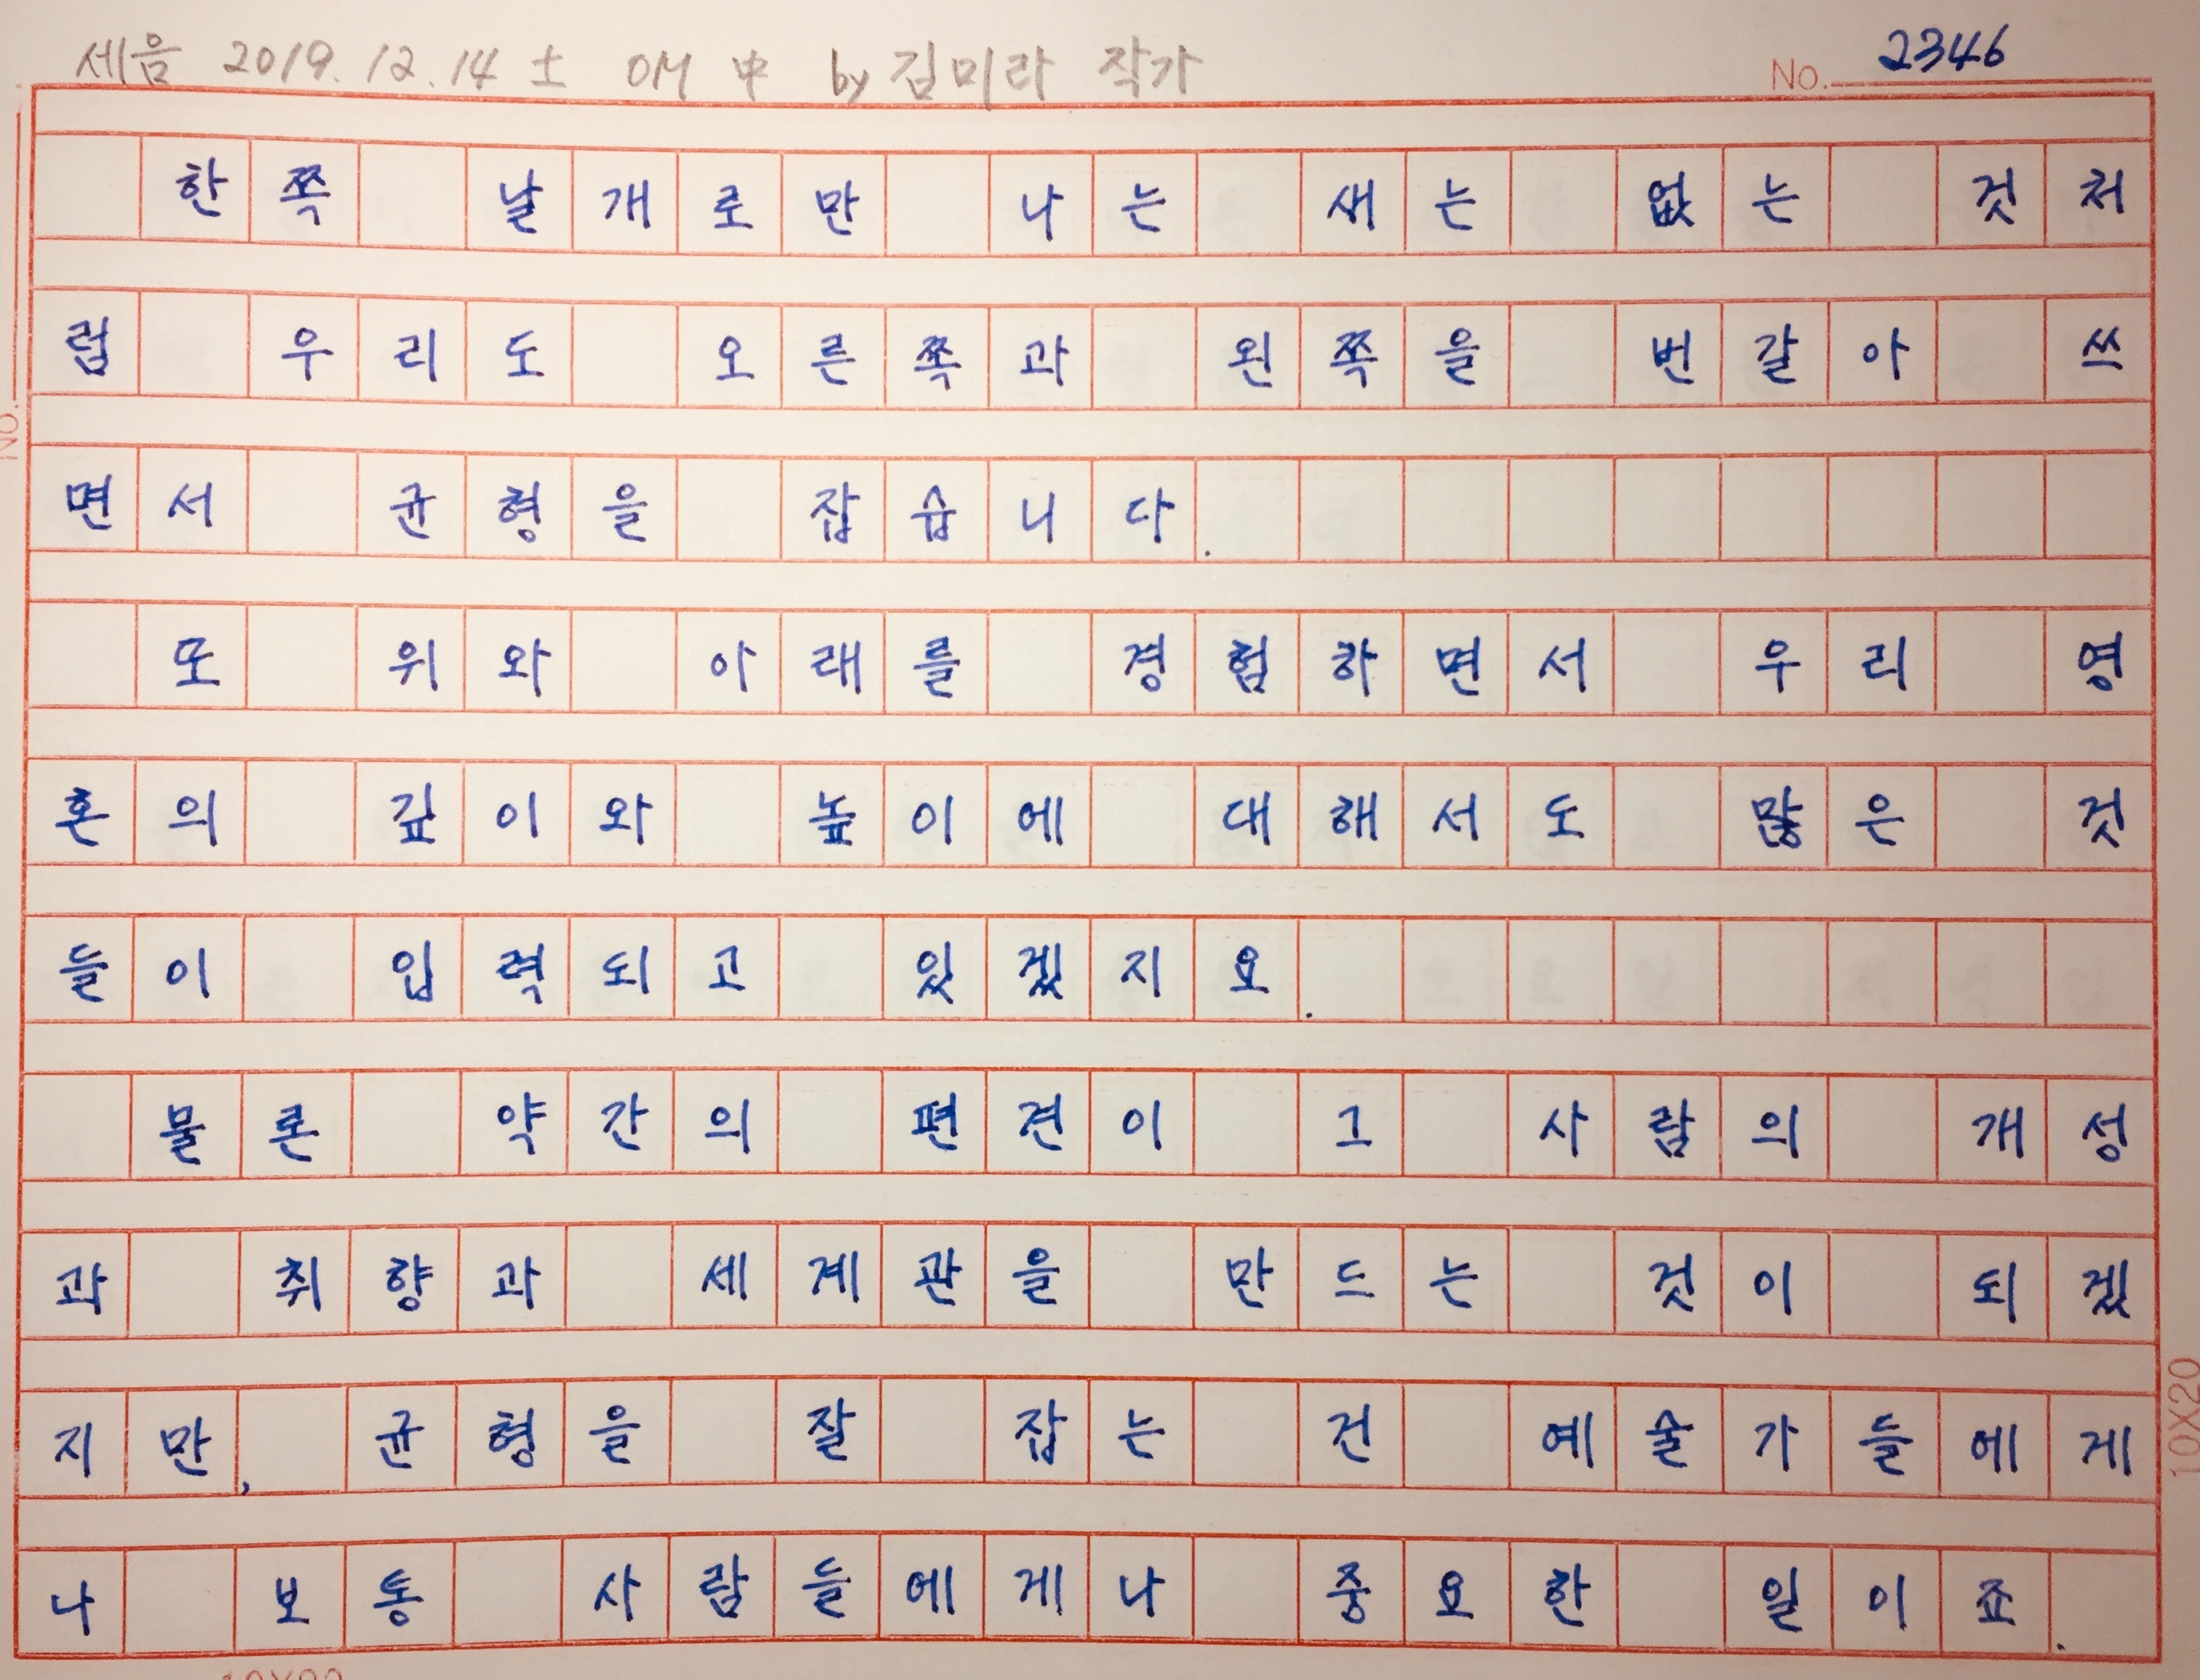 세음 2019.12.14 土 OM 中 by 김미라 작가
No. 2346
한쪽 날개로만 나는 새는 없는 것처
럼 우리도 오른쪽과 왼쪽을 번갈아 쓰
면서 균형을 잡습니다.
또 위와 아래를 경험하면서 우리 영
혼의 깊이와 높이에 대해서도 많은 것
들이 입력되고 있겠지요.
물론 약간의 편견이 그 사람의 개성
과 취향과 세계관을 만드는 것이 되겠
지만, 균형을 잘 잡는 건 예술가들에게
나 보통 사람들에게나 중요한 일이죠.
No.
10X20
10X20